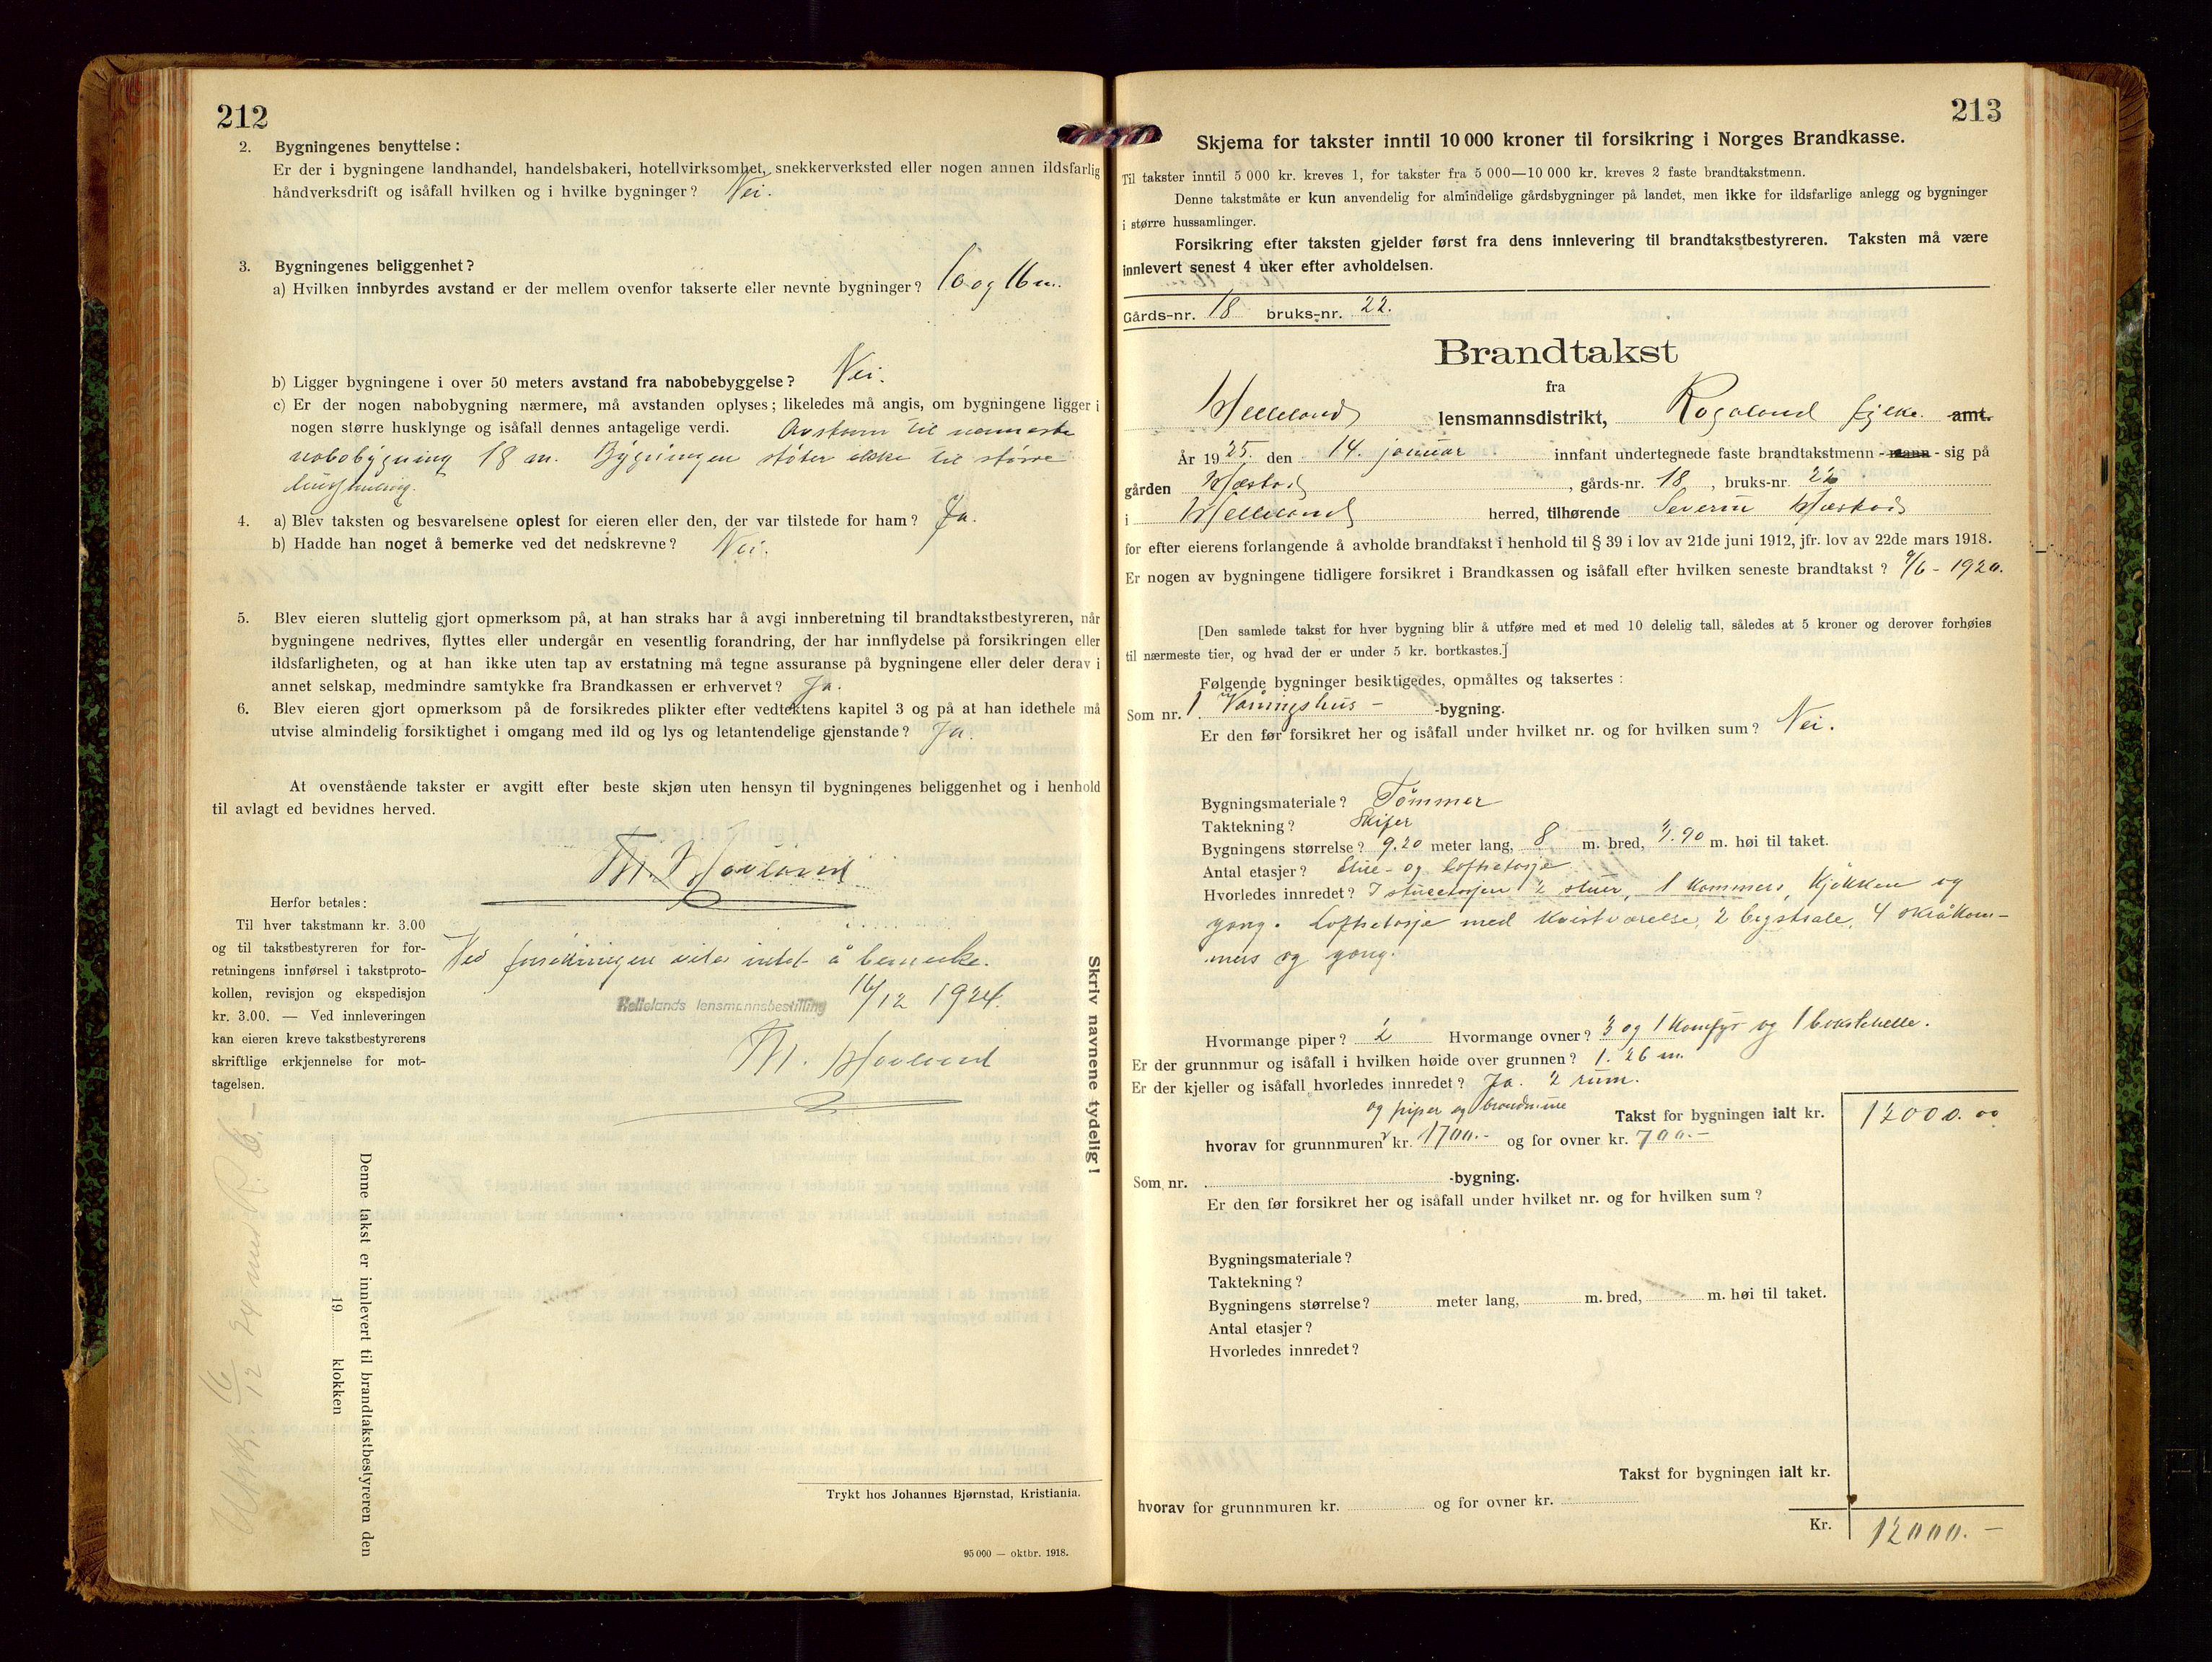 212
2. Bygningenes benyttelse:
Er der i bygningene landhandel, handelsbakeri, hotellvirksomhet, snekkerverksted eller nogen annen ildsfarlig
håndverksdrift og isåfall hvilken og i hvilke bygninger? Nei.
3. Bygningenes beliggenhet?
a) Hvilken innbyrdes avstand er der mellem ovenfor takserte eller nevnte bygninger? 10 og 16 m.
b) Ligger bygningene i over 50 meters avstand fra nabobebyggelse? Nei.
c) Er der nogen nabobygning nærmere, må avstanden oplyses; likeledes må angis, om bygningene ligger i
nogen større husklynge og isåfall dennes antagelige verdi. Avstann til nærmeste
nabobygning 18 m. Bygningen støter ikke til større
4. a) Blev taksten og besvarelsene oplest for eieren eller den, der var tilstede for ham? Ja.
b) Hadde han noget å bemerke ved det nedskrevne? Nei.
5. Blev eieren sluttelig gjort opmerksom på, at han straks har å avgi innberetning til brandtakstbestyreren, når
bygningene nedrives, flyttes eller undergår en vesentlig forandring, der har innflydelse på forsikringen eller
ildsfarligheten, og at han ikke uten tap av erstatning må tegne assuranse på bygningene eller deler derav i
annet selskap, medmindre samtykke fra Brandkassen er erhvervet? Ja.
6. Blev eieren gjort opmerksom på de forsikredes plikter efter vedtektens kapitel 3 og på at han idethele må
utvise almindelig forsiktighet i omgang med ild og lys og letantendelige gjenstande? Ja.
At ovenstående takster er avgitt efter beste skjøn uten hensyn til bygningenes beliggenhet og i henhold
til avlagt ed bevidnes herved.
Hovland
Herfor betales:
Til hver takstmann kr. 3.00
og til takstbestyreren for for-
retningens innførsel i takstproto-
kollen, revisjon og ekspedisjon
kr. 3.00. — Ved innleveringen
kan eieren kreve takstbestyrerens
skriftlige erkjennelse for mot-
tagelsen.
Ved forsikringen vites intet å bemerke.
Hellelands lensmannsbestilling 16/12 1924.
M. Hovland
Skriv navnene tydelig!
Denne takst er innlevert til brandtakstbestyreren den
19 klokken
16/12 24
Trykt hos Johannes Bjørnstad, Kristiania.
95 000 — oktbr. 1918.
213
Skjema for takster inntil 10 000 kroner til forsikring i Norges Brandkasse.
Til takster inntil 5 000 kr. kreves 1, for takster fra 5 000—10 000 kr. kreves 2 faste brandtakstmenn.
Denne takstmåte er kun anvendelig for almindelige gårdsbygninger på landet, men ikke for ildsfarlige anlegg og bygninger
i større hussamlinger.
Forsikring efter taksten gjelder først fra dens innlevering til brandtakstbestyreren. Taksten må være
innlevert senest 4 uker efter avholdelsen.
Gårds-nr. 18 bruks-nr. 22.
Brandtakst
fra
Helleland lensmannsdistrikt, Rogaland fylke. amt.
År 1925. den 14. januar innfant undertegnede faste brandtakstmenn - mann - sig på
gården Hæstad, gårds-nr. 18, bruks-nr. 22
i Helleland herred, tilhørende Severin Hæstad
for efter eierens forlangende å avholde brandtakst i henhold til § 39 i lov av 21de juni 1912, jfr. lov av 22de mars 1918.
Er nogen av bygningene tidligere forsikret i Brandkassen og isåfall efter hvilken seneste brandtakst? 9/6 - 1920.
[Den samlede takst for hver bygning blir å utføre med et med 10 delelig tall, således at 5 kroner og derover forhøies
til nærmeste tier, og hvad der er under 5 kr. bortkastes.]
Følgende bygninger besiktigedes, opmåltes og taksertes:
Som nr. 1 Våningshus - -bygning.
Er den før forsikret her og isåfall under hvilket nr. og for hvilken sum? Nei.
Bygningsmateriale? Tømmer
Taktekning? Skifer
Bygningens størrelse? 9.20 meter lang, 8 m. bred, 3.90 m. høi til taket.
Antal etasjer? Stue- og loftsetasje
Hvorledes innredet? I stueetasjen 2 stuer, 1 kammers, kjøkken og
gang. Loftsetasje med kvistværelse, 2 bigstrale, 4 skråkam-
mers og gang.
Hvormange piper? 2 Hvormange ovner? 3 og 1 komfyr og 1 bakstehelle.
Er der grunnmur og isåfall i hvilken høide over grunnen? 1.26 m.
Er der kjeller og isåfall hvorledes innredet? Ja. 2 rum.
og piper og brandmure
Takst for bygningen ialt kr. 12000.00
hvorav for grunnmuren kr. 1700.- og for ovner kr. 700.-
Som nr. -bygning.
Er den før forsikret her og isåfall under hvilket nr. og for hvilken sum?
Bygningsmateriale?
Taktekning?
Bygningens størrelse? meter lang, m. bred, m. høi til taket.
Antal etasjer?
Hvorledes innredet?
Takst for bygningen ialt kr.
hvorav for grunnmuren kr. og for ovner kr.
Kr. 12000.-